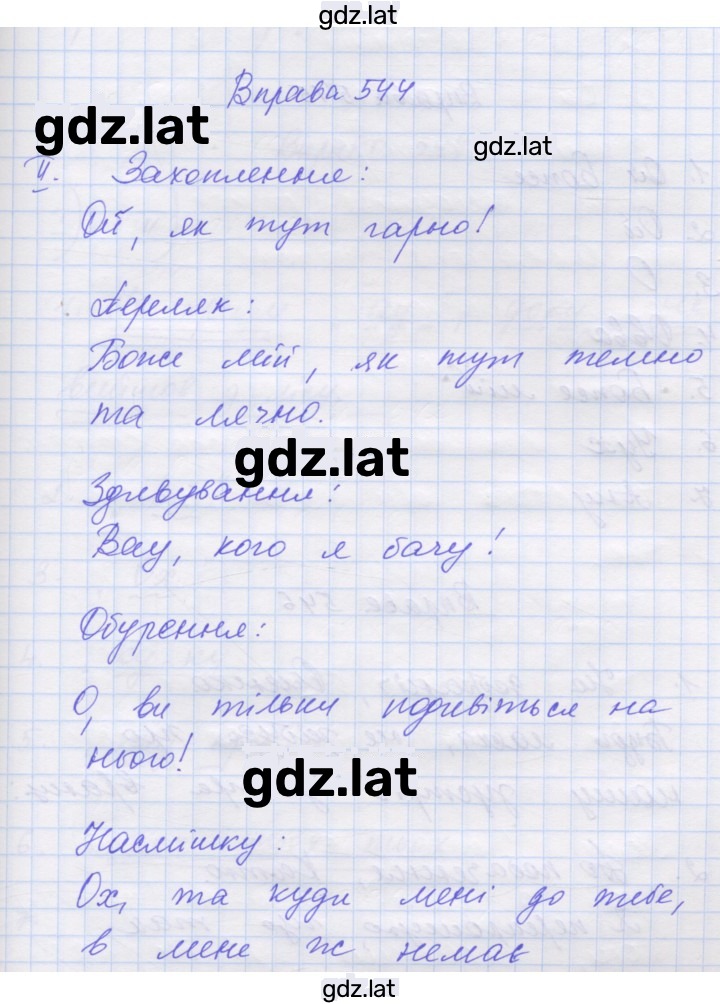 gdz.lat
Вправа 544
gdz.lat
gdz.lat
II. Захоплення:
Ой, як тут гарно!
Переляк:
Боже мій, як тут темно
та лячно.
gdz.lat
Здивування:
Вау, кого я бачу!
Обурення:
О, ви тільки подивіться на
нього!
gdz.lat
Насмішку:
Ох, та куди мені до тебе,
в мене ж немає
gdz.lat